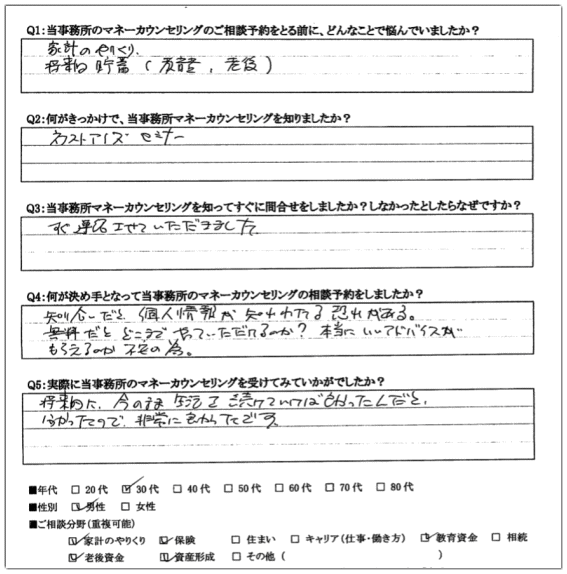 Q1:当事務所のマネーカウンセリングのご相談予約をとる前に、どんなことで悩んでいましたか?
家計のやりくり、
将来の貯蓄(、老後)
Q2:何がきっかけで、当事務所マネーカウンセリングを知りましたか?
ネクストアイズ セミナー
Q3:当事務所マネーカウンセリングを知ってすぐに問合せをしましたか?しなかったとしたらなぜですか?
すぐ連絡させていただきました。
Q4:何が決め手となって当事務所のマネーカウンセリングの相談予約をしましたか?
知り合いだと、個人情報が知られたる恐れがある。
無料だとどこまでやっていただけるのか?本当にいいアドバイスが
もらえるのか不安の為。
Q5:実際に当事務所のマネーカウンセリングを受けてみていかがでしたか?
将来的に、今のまま生活を続けていけば良かったんだと、
分かったので、非常に良かったです。
■年代 □20代 ☑30代 □40代 □50代 □60代 □70代 □80代
■性別 ☑男性 □女性
■ご相談分野(重複可能)
☑家計のやりくり ☑保険 □住まい □キャリア(仕事・働き方) ☑教育資金 □相続
☑老後資金 ☑資産形成 □その他( )